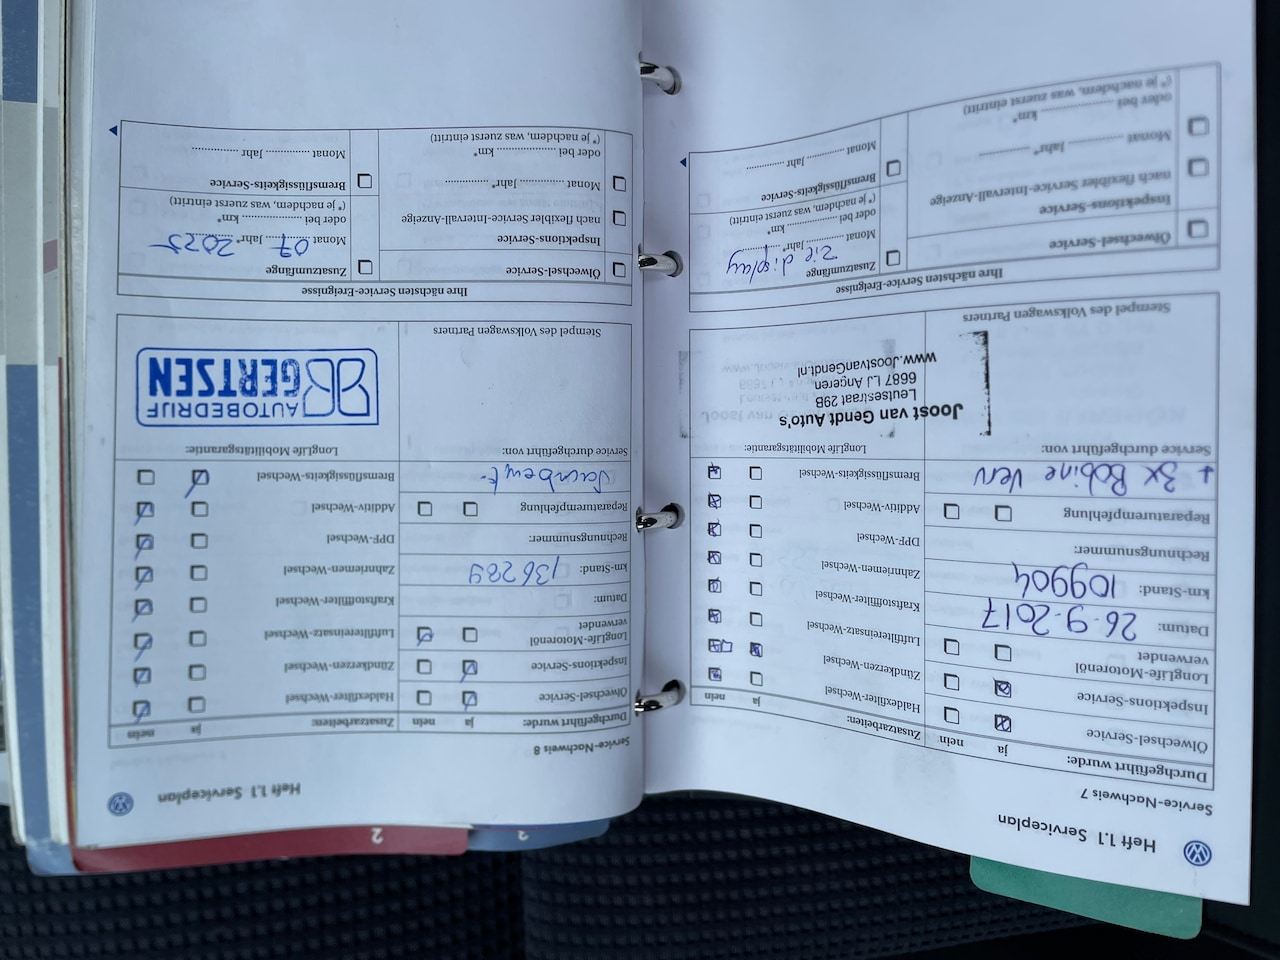 Heft 1.1 Serviceplan
Service-Nachweis 7
Durchgeführt wurde:
ja nein
Ölwechsel-Service
Inspektions-Service
LongLife-Motorenöl
verwendet
Datum: 26-9-2017
km-Stand: 109904
Rechnungsnummer:
Reparaturempfehlung
+ 3x Bobine Verv
Service durchgeführt von:
Zusatzarbeiten:
ja nein
Haldexfilter-Wechsel
Zündkerzen-Wechsel
Luftfiltereinsatz-Wechsel
Kraftstofffilter-Wechsel
Zahnriemen-Wechsel
DPF-Wechsel
Additiv-Wechsel
Bremsflüssigkeits-Wechsel
LongLife Mobilitätsgarantie:
Stempel des Volkswagen Partners
Joost van Gendt Auto's
Leutsestraat 29B
6687 LJ Angeren
www.JoostvanGendt.nl
Ihre nächsten Service-Ereignisse
Ölwechsel-Service
Inspektions-Service
nach flexibler Service-Intervall-Anzeige
Monat ............ Jahr* ............
oder bei ............ km*
(* je nachdem, was zuerst eintritt)
Zusatzumfänge
zie display
Monat ............ Jahr* ............
oder bei ............ km*
(* je nachdem, was zuerst eintritt)
Bremsflüssigkeits-Service
Monat ............ Jahr ............
Heft 1.1 Serviceplan
Service-Nachweis 8
Durchgeführt wurde:
ja nein
Ölwechsel-Service
Inspektions-Service
LongLife-Motorenöl
verwendet
Datum:
km-Stand: 136289
Rechnungsnummer:
Reparaturempfehlung
Service durchgeführt von:
Zusatzarbeiten:
ja nein
Haldexfilter-Wechsel
Zündkerzen-Wechsel
Luftfiltereinsatz-Wechsel
Kraftstofffilter-Wechsel
Zahnriemen-Wechsel
DPF-Wechsel
Additiv-Wechsel
Bremsflüssigkeits-Wechsel
LongLife Mobilitätsgarantie:
Stempel des Volkswagen Partners
AUTOBEDRIJF
GERTSEN
Ihre nächsten Service-Ereignisse
Ölwechsel-Service
Inspektions-Service
nach flexibler Service-Intervall-Anzeige
Monat ............ Jahr* ............
oder bei ............ km*
(* je nachdem, was zuerst eintritt)
Zusatzumfänge
Monat 07 Jahr* 2025
oder bei ............ km*
(* je nachdem, was zuerst eintritt)
Bremsflüssigkeits-Service
Monat ............ Jahr ............
2
3